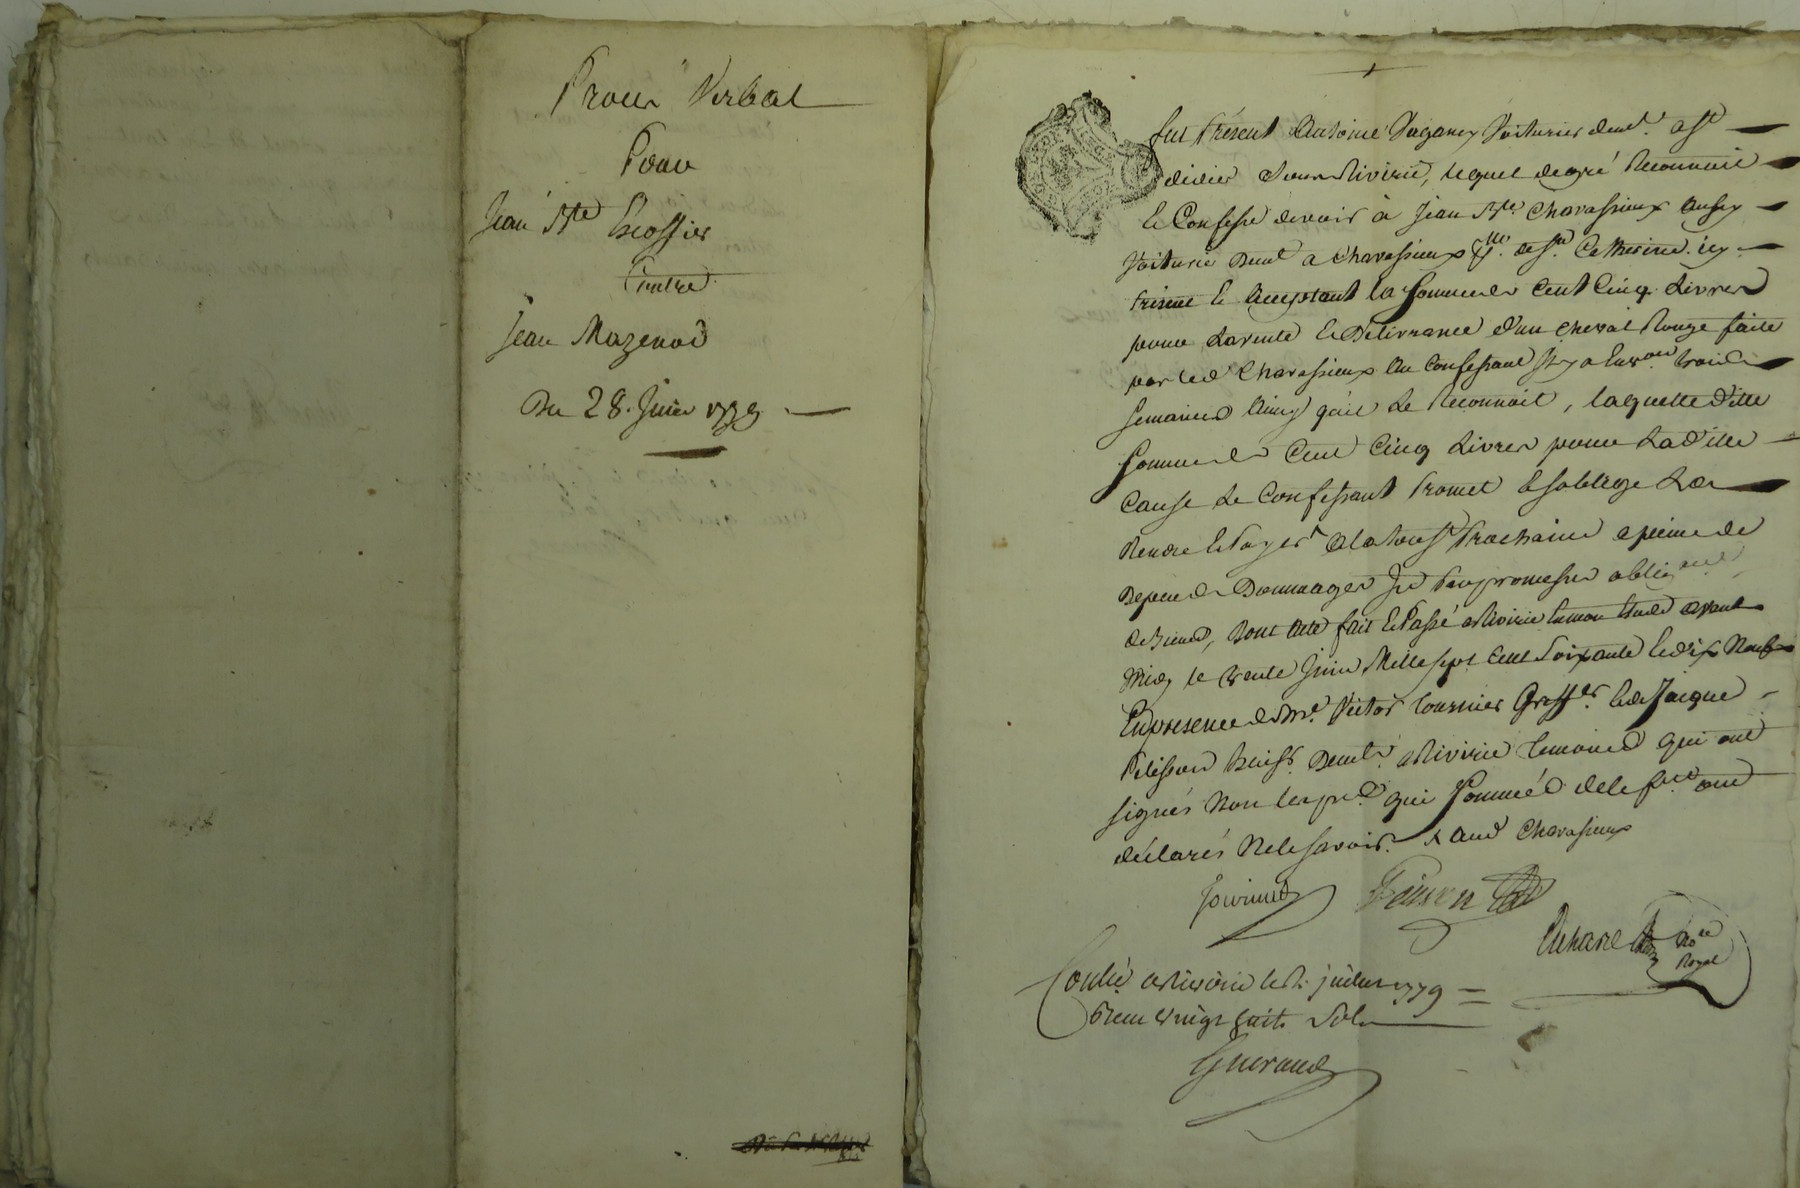 Procès Verbal
Pour
Jean Bte Escoffier
Contre
Jean Mazenod
Du 28. Juin 1779
fut Présent Antoine Vaganey Voiturier demt. a St
didier Sous Rivirie, lequel de gré Reconnoit
Et Confesse devoir à Jean Bte. Chavassieux aussy
Voiturier Demt a Chavassieux psse. de Ste. Catherine icy
Présent Et Acceptant la Somme de Cent Cinq Livres
pour La vente Et Délivrance d'un Cheval Rouge faite
par led Chavassieux Au Confessant Il y a Environ trois
Semaines Ainsy qu'il Le Reconnoit, laquelle ditte
Somme de Cent Cinq Livres pour La ditte
Cause Le Confessant Promet Et s'oblige De
Rendre Et Payer A la touSt Prochaine a peine de
Depens Dommages Par promesses obligons
de Biens, Dont Acte fait Et Passé a Rivirie En mon Etude avant
Midy le trente Juin Mille sept Cent Soixante Et dix Neuf
En presence de Me. Victor tournier Greffer. Et de Jacque
Pelisson huiss. Demts. a Rivirie temoins qui ont
signés Non les pties. qui Sommés de le fre. ont
déclarés Ne le savoir. & Aud Chavassieux
No.re
Royal
Conllé a Rivirie le juillet 1779
Reçu vingt huit Sols
Gueraud